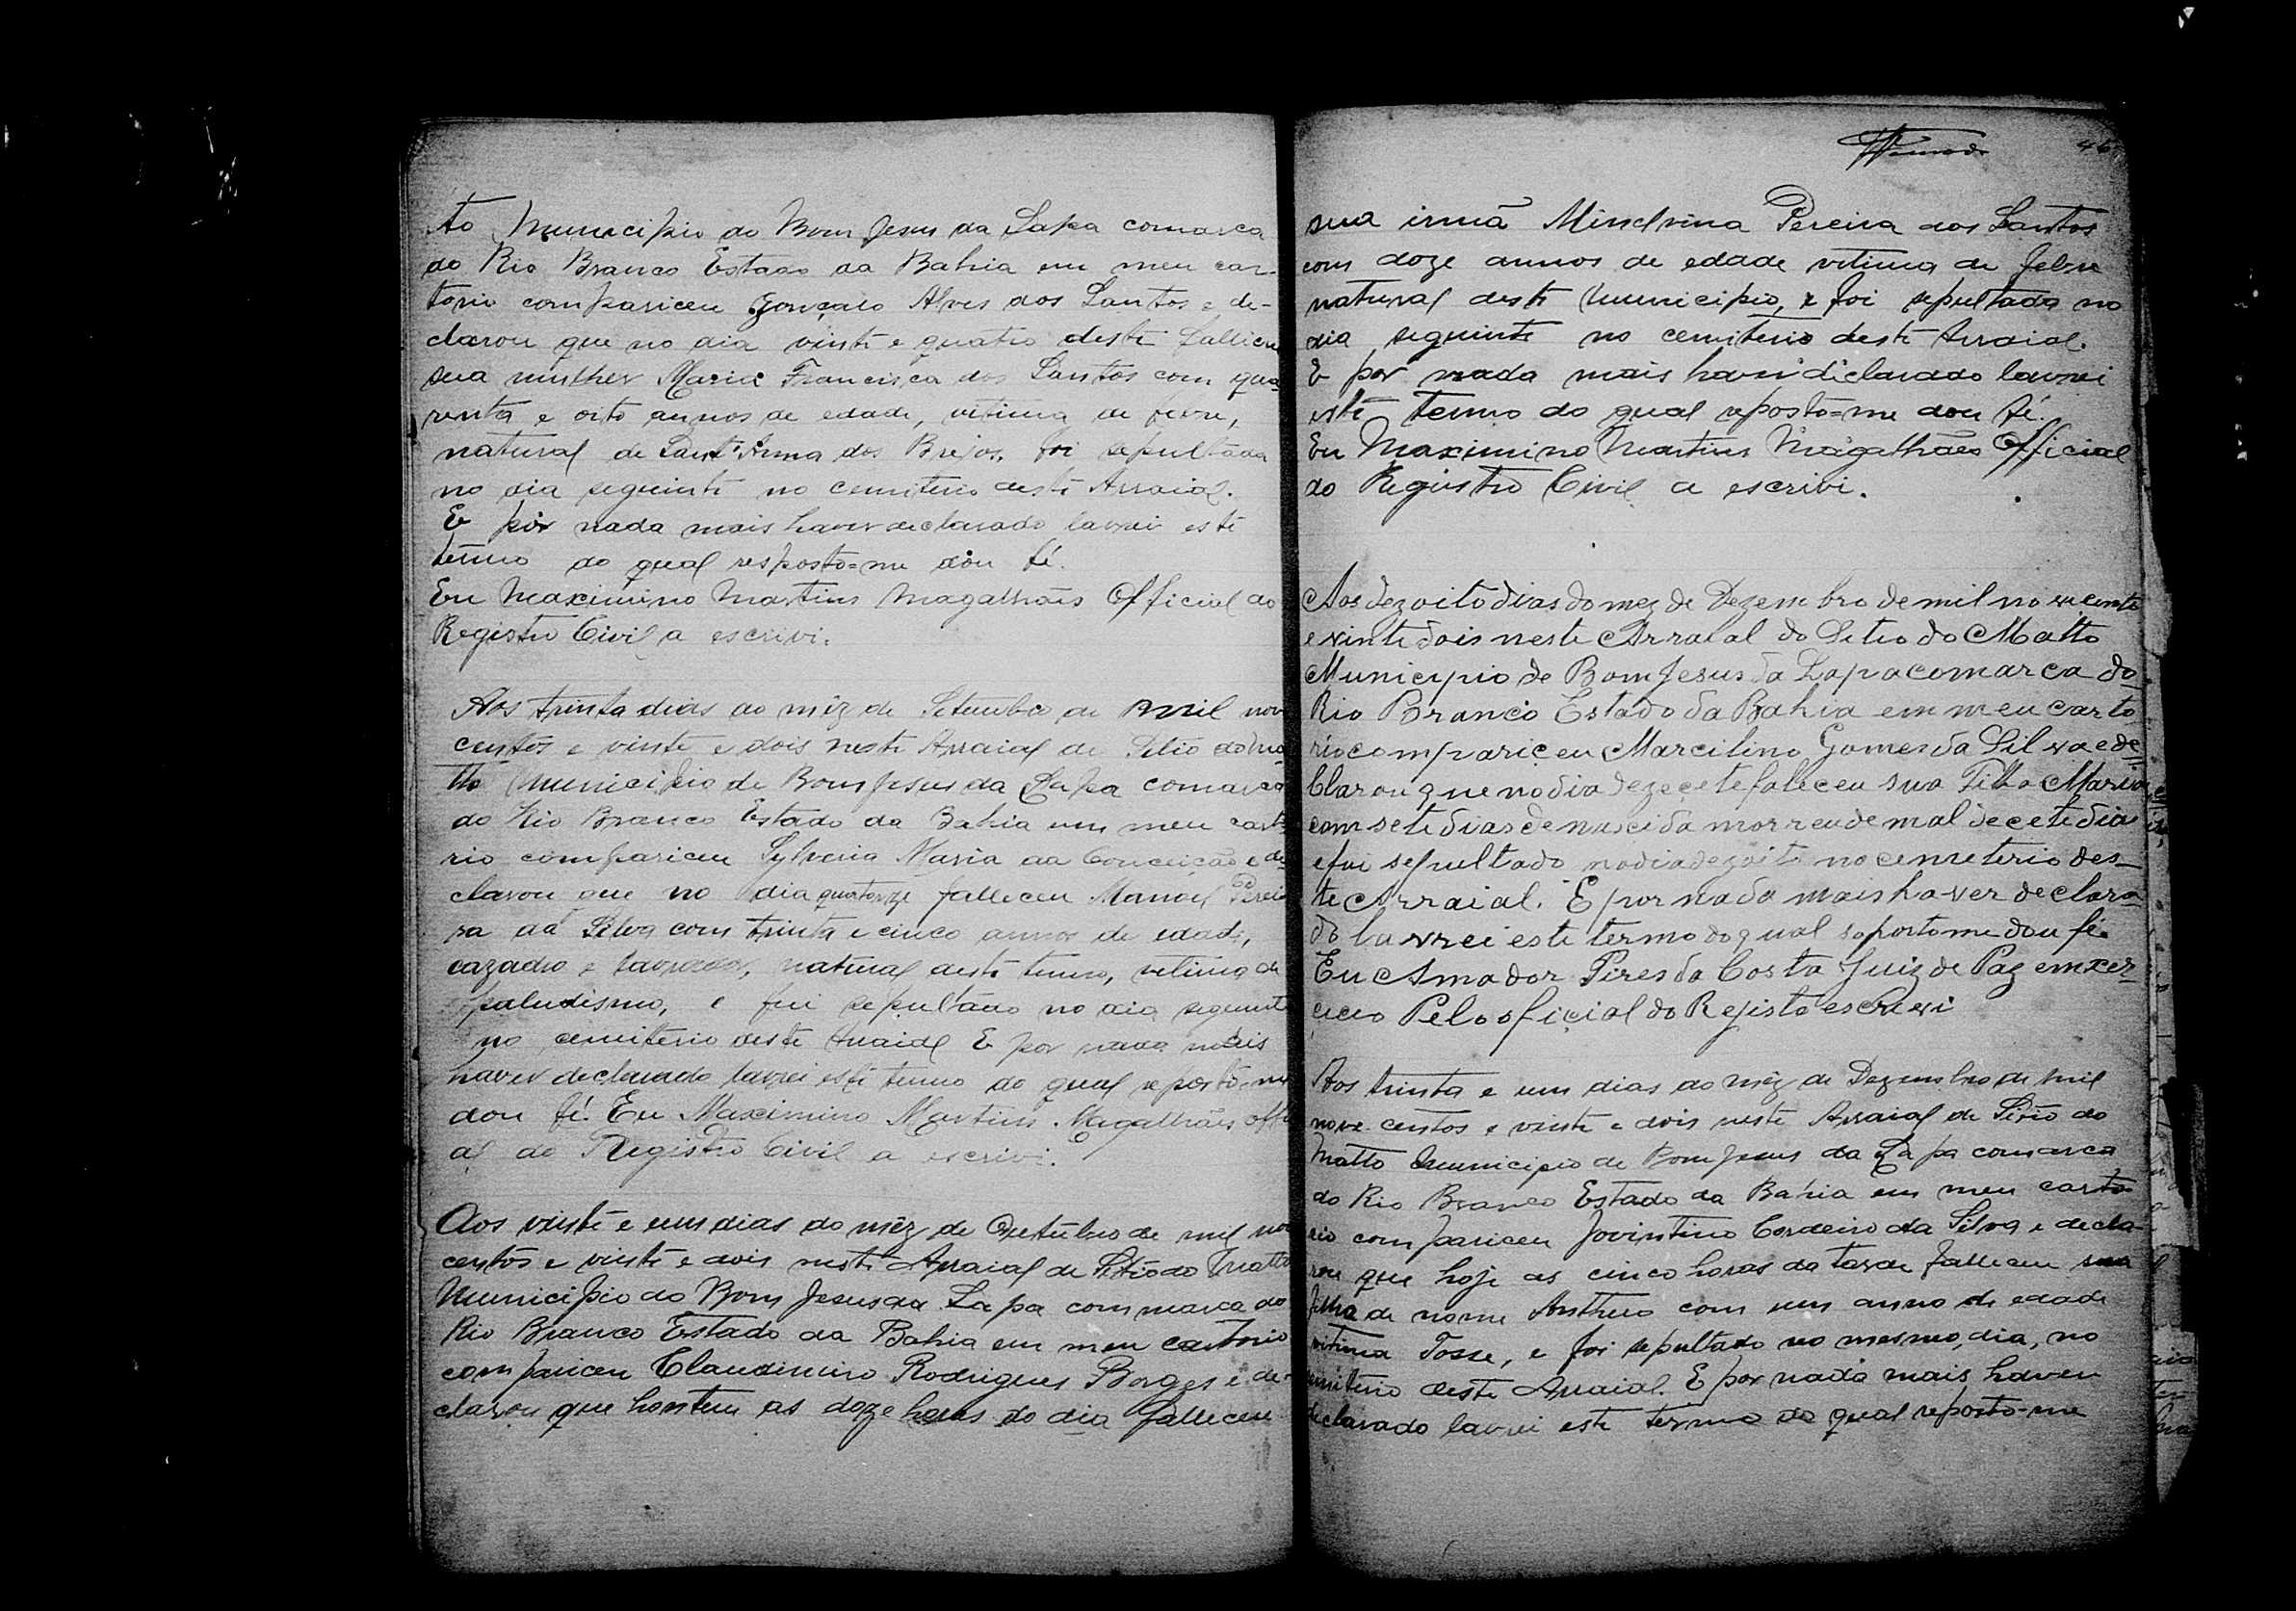 to Municipio do Bom Jesus da Lapa comarca
do Rio Branco Estado da Bahia em meu car-
torio compariceu Gonçalo Alves dos Santos e de-
clarou que no dia vinte e quatro deste falliceu
sua mulher Maria Francisca dos Santos com qua
renta e oito annos de edade, vitima de febre,
natural de Sant'Anna dos Brejos, foi sepultada
no dia seguinte no cemiterio deste Arraial.
E por nada mais haver declarado lavrei este
termo do qual resposto=me dou fé.
Eu Maximino Martins Magalhães Official do
Registro Civil a escrivi.
Aos trinta dias do mêz de Setembro de mil nove
centos e vinte e dois neste Arraial de Sitio do Ma
tto Municipio de Bom Jesus da Lapa comarca
do Rio Branco Estado da Bahia em meu carto
rio compariceu Sylveria Maria da Conceição e de
clarou que no dia quatorze falleceu Manoel Perei
ra da Silva com trinta e cinco annos de edade,
cazado e lavrador, natural deste termo, vitima de
paludismo, e foi sepultado no dia seguinte
no cemiterio deste Arraial E por nada mais
haver declarado lavrei este termo do qual reposto-me
dou fé. Eu Maximino Martins Magalhães offici
al do Registro Civil a escrivi.
Aos vinte e um dias do mêz de Outubro de mil nove
centos e vinte e dois neste Arraial de Sitio do Matto
Municipio do Bom Jesus da Lapa commarca do
Rio Branco Estado da Bahia em meu cartorio
compariceu Claudimiro Rodrigues Borges e de-
clarou que hontem as doze horas do dia falleceu
46
sua irmã Mindrina Pereira dos Santos
com doze annos de edade vitima de febre
natural deste Municipio, e foi sepultada no
dia seguinte no cemiterio deste Arraial.
E por nada mais haver diclarado lavrei
este termo do qual reposto=me dou fé.
Eu Maximino Martins Magalhães Official
do Registro Civil a escrivi.
Aos dezoito dias do mez de Dezembro de mil novecento
e vinte dois neste Arraial do Setio do Matto
Municipio de Bom Jesus da Lapa comarca do
Rio Branco Estado da Bahia em meu carto
rio compariçeu Marcilino Gomes da Silva e de
clarou que no dia dezecete faleceu sua Filha Maria
com sete dias de nascida morreu de mal de cete dia
e foi sepultado no dia dezoito no cemeterio des-
te Arraial. E por nada mais ha-ver declara
do lavrei este termo do qual soporto me dou fé.
Eu Amador Pires da Costa Juiz de Paz em xer
cicio Pelo oficial do Rejisto escrivi
Aos trinta e um dias do mêz de Dezembro de mil
nove centos e vinte e dois neste Arraial de Sitio do
Matto Municipio de Bom Jesus da Lapa comarca
do Rio Branco Estado da Bahia em meu carto
rio compariceu Jovintino Cordeiro da Silva e decla-
rou que hoje as cinco horas da tarde falleceu sua
filha de nome Antheio com um anno de edade
vitima Tosse, e foi sepultado no mesmo, dia, no
cemiterio deste Arraial. E por nada mais haver
declarado lavrei este termo do qual reposto-me